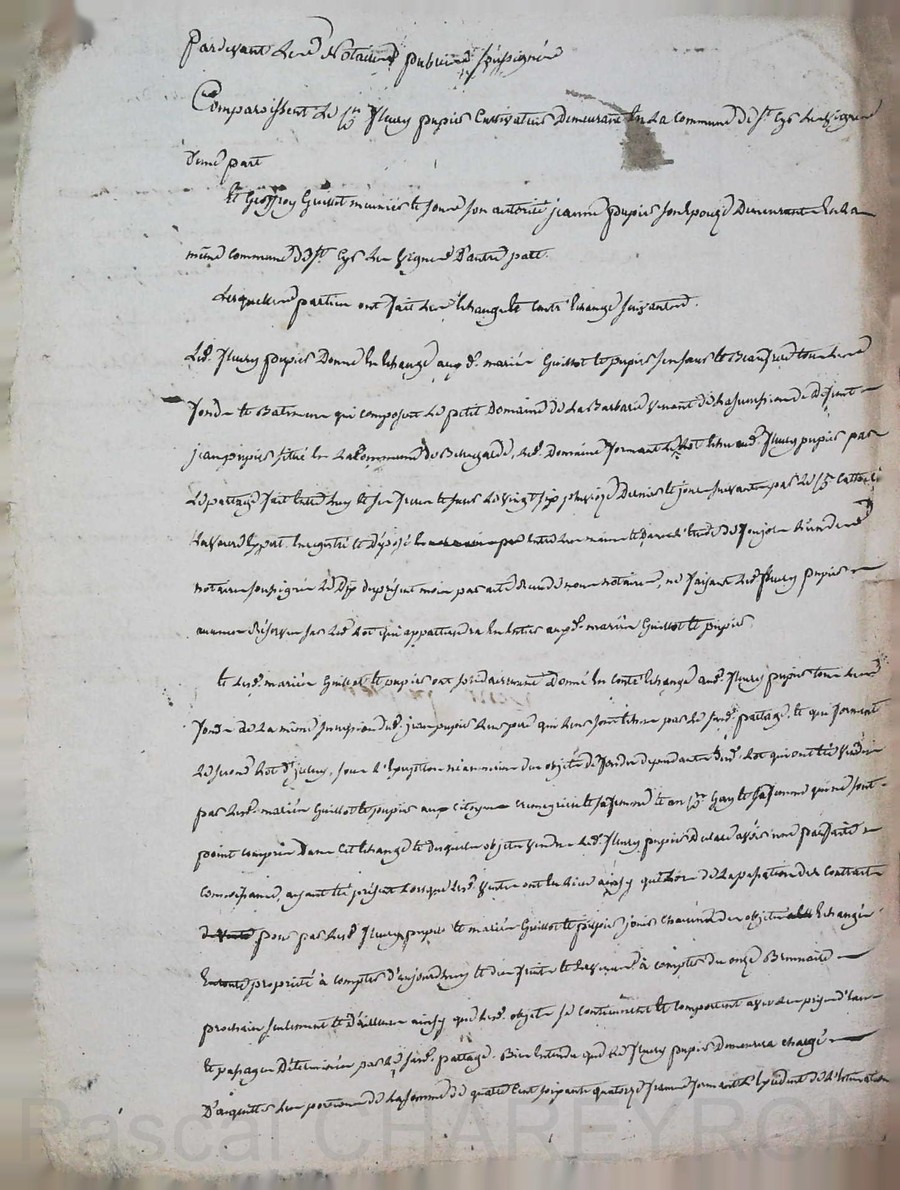 Pardevant Les Notaires publics soussignés
Comparoissent Le sr fleury pupier Cultivateur Demeurant En La Commune de St Cyr Les vignes
d'une part
Et Geoffroy Guillot meunier et sous son autorité jeanne pupier son Epouze Demeurant En La
même commune de St Cyr Les vignes d'autre part.
Lesquelles parties ont fait Les Echange et Contr'Echange suivants.
Led. fleury pupier Donne En Echange auxd. mariés Guillot et pupier ses sœur et Beaufrere tous Les
fonds et Batiments qui composent Le petit Domaine de La Barbarie venant de La succession de Defunt
jean pupier situé En La Commune de Bellegarde, Led. Domaine formant Le Lot Echu aud. fleury pupier par
Le partage fait Entre Luy et ses sœurs Le vingt six pluviose Dernier le jour suivant par Le sr
Enregistré et Déposé Entre Les mains et Dans L'Etude de
notaire soussigné Le Dix du présent mois par acte Reçu de nous notaires, ne faisant Led. fleury pupier
aucune Réserve sur Led. Lot qui appartiendra En Entier auxd. mariés Guillot et pupier.
Et Lesd. mariés Guillot et pupier ont solidairement Donné En Contr'Echange aud. fleury pupier tous Les
fonds de La même succession dud. jean pupier Leur pere qui Leur sont Echus par Le susd. partage, et qui forment
Le second Lot d'iceluy, sous L'Exception néanmoins des objets de fonds dependants dud. Lot qui ont été vendus
par Lesd. mariés Guillot et pupier aux Citoyens et sa femme et au sr Gay et sa femme qui ne sont
point compris Dans Cet Echange et desquels objets vendus Led. fleury pupier Declare avoir une parfaite
connoissance, ayant été présent Lorsque Lesd. ventes ont Eu Lieu ainsy que Lors de La passation des Contracts
pour par Lesd. fleury pupier et mariés Guillot et pupier jouir chacun des objets Echangés
En toute propriété à compter d'aujourdhuy et des fruits et Revenus à compter du onze Brumaire
prochain seulement et d'ailleurs ainsy que Lesd. objets se contiennent et comportent avec Les prises d'Eau
et passages Déterminés par Le susd. partage. Bien Entendu que Led. fleury pupier Demeurera chargé
D'acquitter Leur portion de La somme de quatre Cent soixante quatorze francs formant L'Excédent de L'Estimation
Pascal CHAREYRON